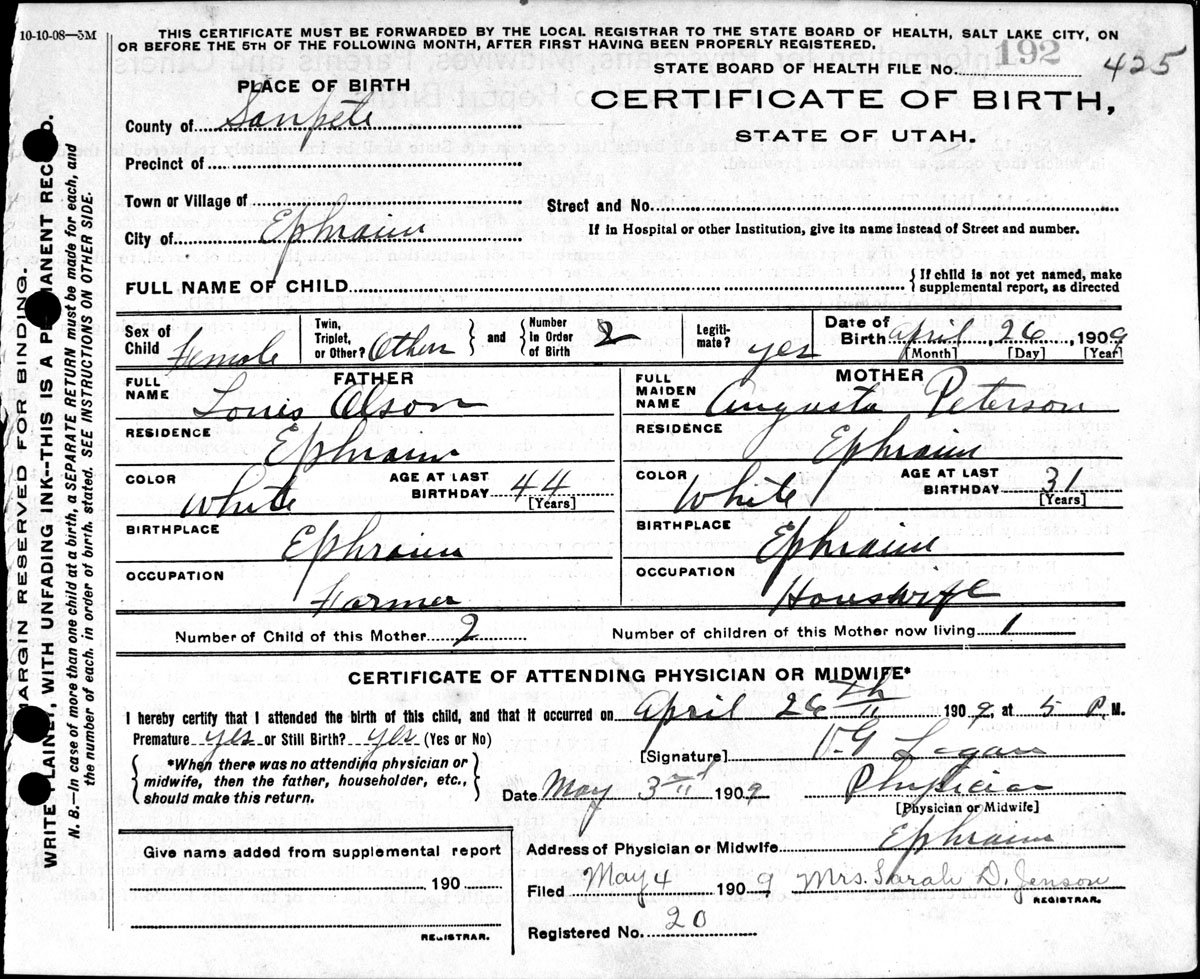 10-10-08—5M
THIS CERTIFICATE MUST BE FORWARDED BY THE LOCAL REGISTRAR TO THE STATE BOARD OF HEALTH, SALT LAKE CITY, ON
OR BEFORE THE 5TH OF THE FOLLOWING MONTH, AFTER FIRST HAVING BEEN PROPERLY REGISTERED.
STATE BOARD OF HEALTH FILE No. 192 425
PLACE OF BIRTH
CERTIFICATE OF BIRTH,
STATE OF UTAH.
County of Sanpete
Precinct of
Town or Village of
Street and No.
City of Ephraim
If in Hospital or other Institution, give its name instead of Street and number.
FULL NAME OF CHILD { If child is not yet named, make
supplemental report, as directed
Sex of Child Female
Twin, Triplet, or Other? Other } and { Number in Order of Birth 2
Legiti-mate? yes
Date of Birth April 26, 1909
[Month] [Day] [Year]
FATHER
FULL NAME Louis Olson
MOTHER
FULL MAIDEN NAME Augusta Peterson
RESIDENCE Ephraim
RESIDENCE Ephraim
COLOR White AGE AT LAST BIRTHDAY 44 [Years]
COLOR White AGE AT LAST BIRTHDAY 31 [Years]
BIRTHPLACE Ephraim
BIRTHPLACE Ephraim
OCCUPATION Farmer
OCCUPATION Houswife
Number of Child of this Mother 2
Number of children of this Mother now living 1
CERTIFICATE OF ATTENDING PHYSICIAN OR MIDWIFE*
I hereby certify that I attended the birth of this child, and that it occurred on April 26th 1909, at 5 P. M.
Premature yes or Still Birth? yes (Yes or No)
[Signature]
{ *When there was no attending physician or
midwife, then the father, householder, etc.,
should make this return. }
Date May 3rd 1909
Physician
[Physician or Midwife]
Give name added from supplemental report
190
REGISTRAR.
Address of Physician or Midwife Ephraim
Filed May 4 1909 Mrs. Sarah D. Jenson
REGISTRAR.
Registered No. 20
MARGIN RESERVED FOR BINDING.
WRITE PLAINLY, WITH UNFADING INK--THIS IS A PERMANENT RECORD.
N. B.—In case of more than one child at a birth, a SEPARATE RETURN must be made for each, and
the number of each, in order of birth, stated. SEE INSTRUCTIONS ON OTHER SIDE.